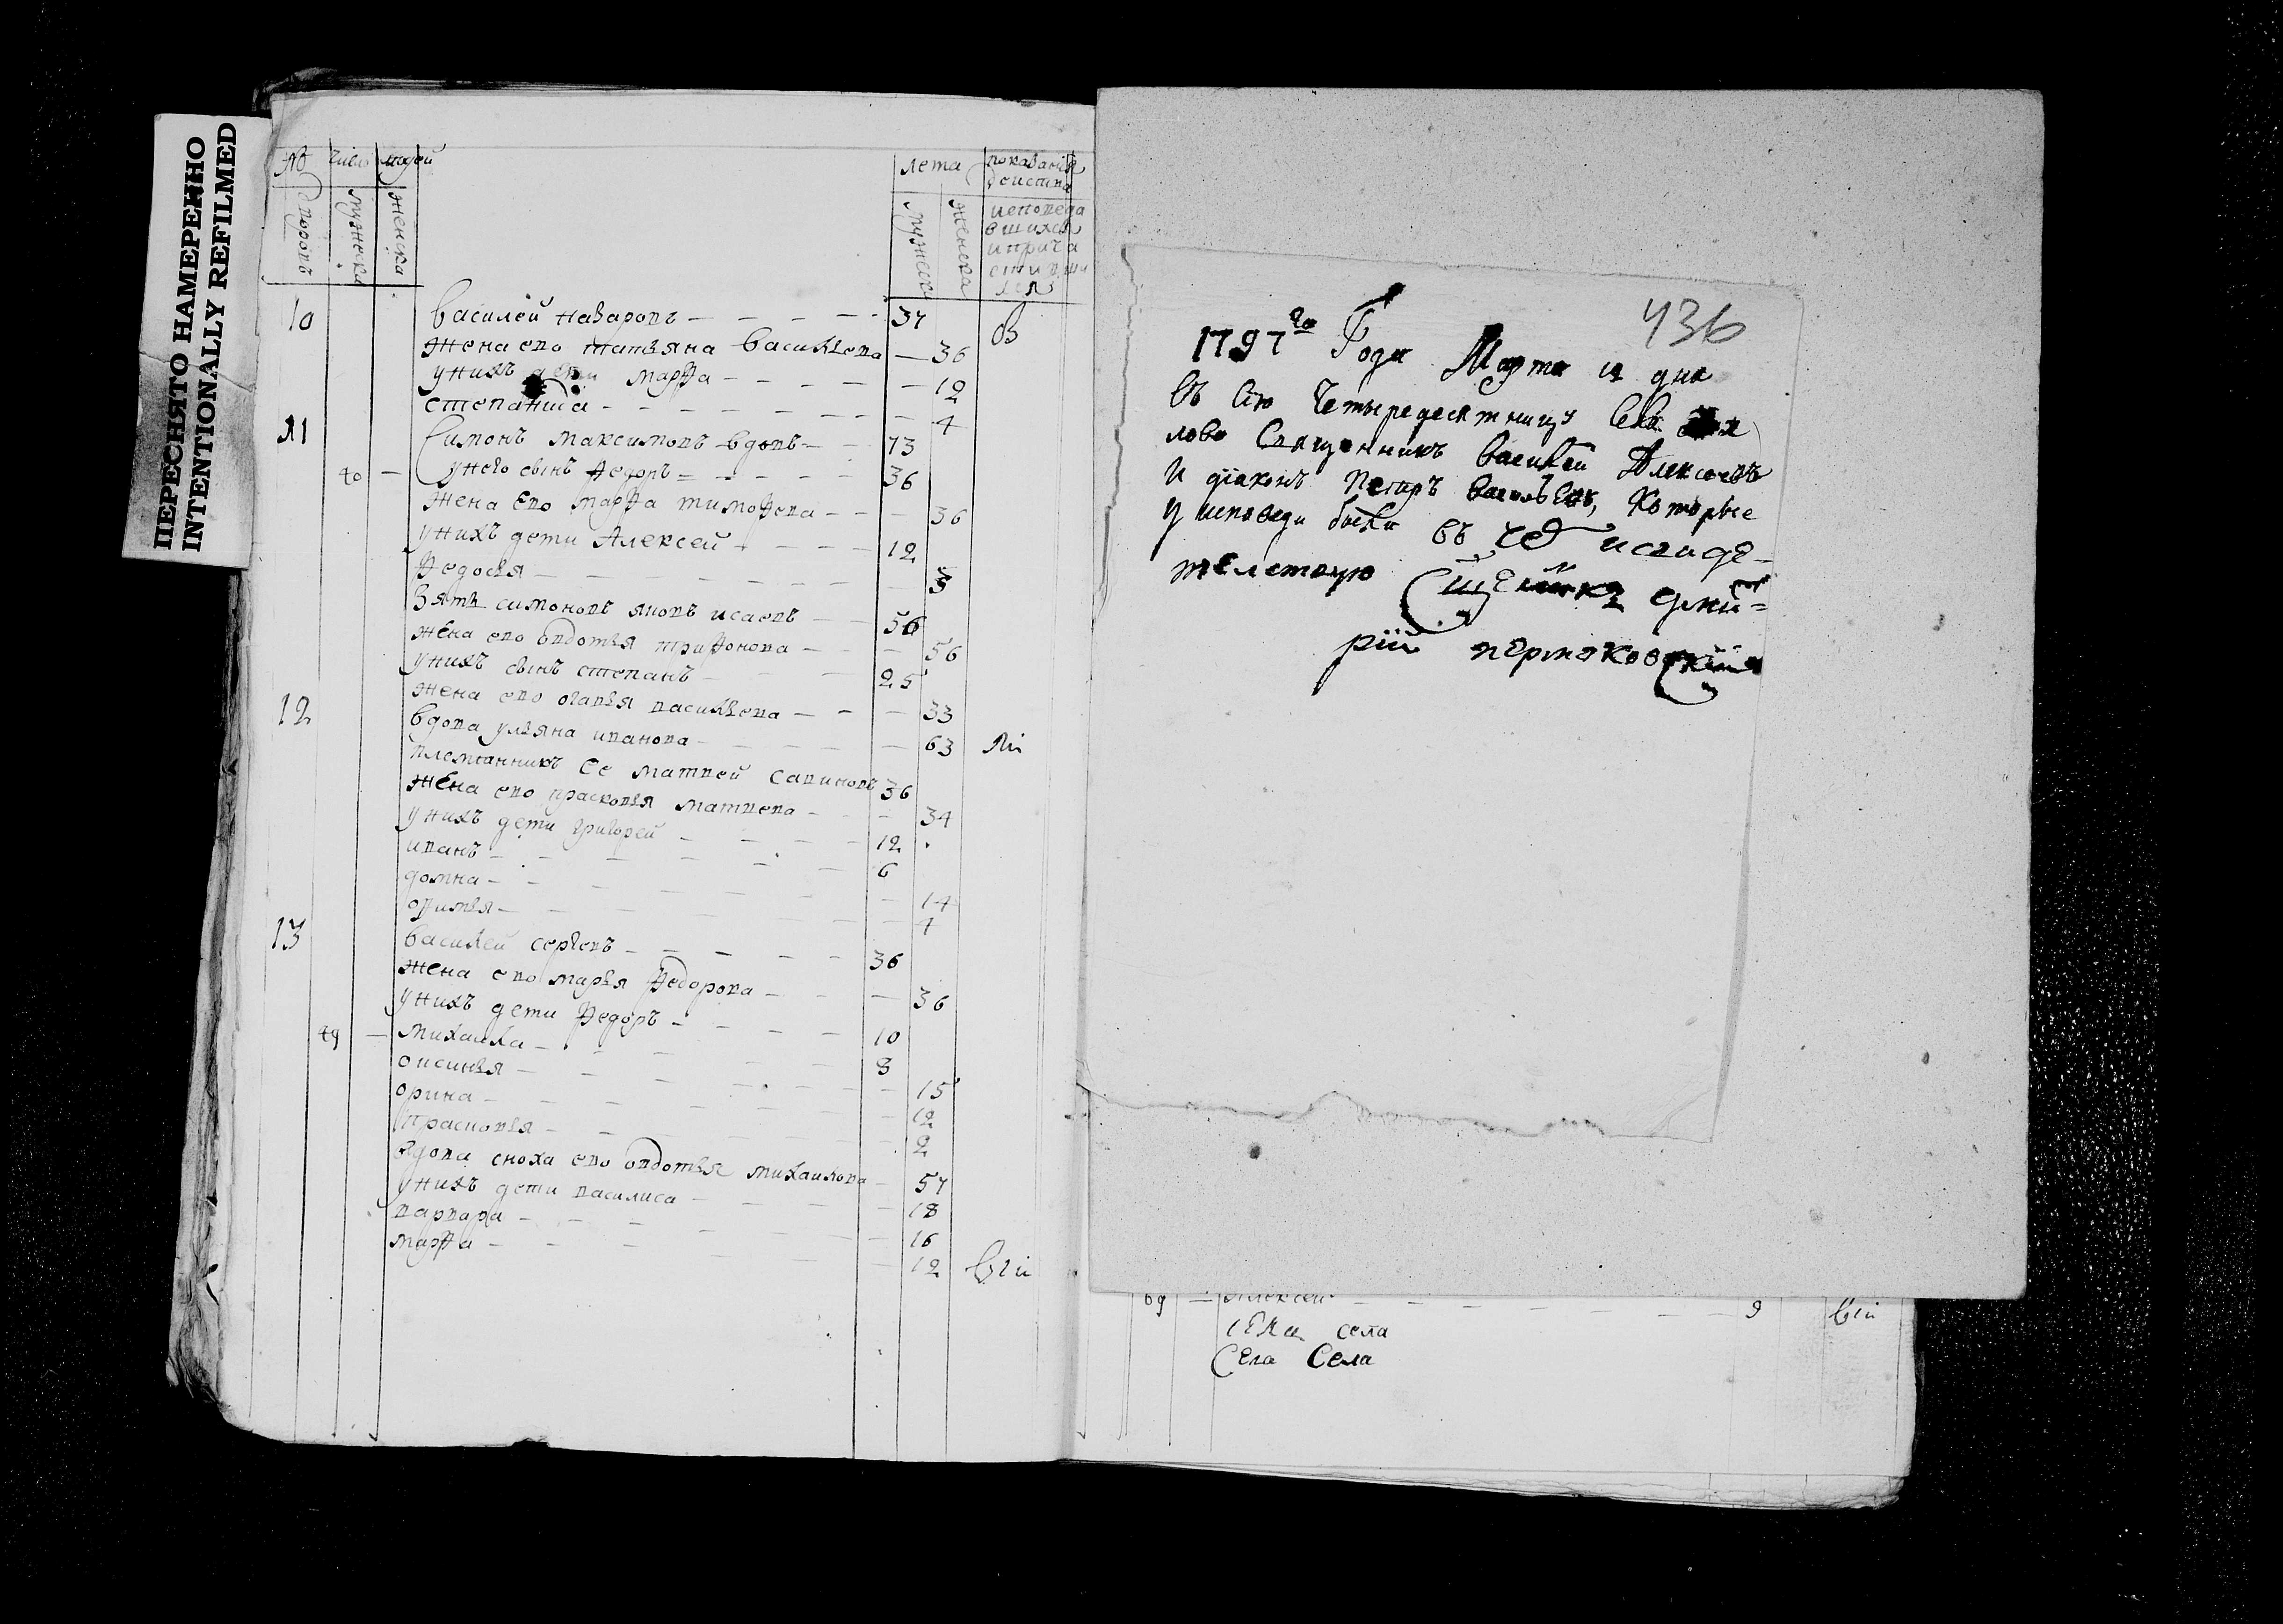 ПЕРЕСНЯТО НАМЕРЕННО
INTENTIONALLY REFILMED
№ число людей лета показанiя
дворовъ мужеска женска мужеска женска исповедавшихся и причастившихся
10 Василей Назаровъ — 37
жена ево татьяна Васильева — 36
у нихъ дети марфа — 12
степанида — 4
11 Симонъ максимовъ вдовъ — 73
40 — у него сынъ Федоръ — 36
жена ево марфа тимофева — 36
у нихъ дети Алексей — 12
Федосья —
Зять симоновъ яковъ исаевъ — 56
жена ево овдотья трифонова — 56
у нихъ сынъ степанъ — 25
жена ево василева — 33
12 вдова ульяна иванова — 63
племянникъ ее матвей савиновъ 36
жена ево прасковья матвева — 34
у нихъ дети григорей — 12
иванъ — 6
домна — 14
офимья — 4
13 Василей сергевъ — 36
жена ево марья Федорова — 36
у нихъ дети Федоръ — 10
49 — михаила — 8
оксинья — 15
орина — 12
прасковья — 2
вдова сноха ево овдотья михаилова — 57
у нихъ дети василиса — 18
варвара — 16
марфа — 12
436
1797 го Года Марта дня
въ сiю Четыредесятницу села
лова Священникъ Василей Алексеевъ
и дiаконъ Петръ Васильевъ, Которые
у исповеди были въ чемъ и свиде-
телствую Сщенникъ Дми-
трiй пермяковскiй
69 — Алексей — 9
села
Села Села